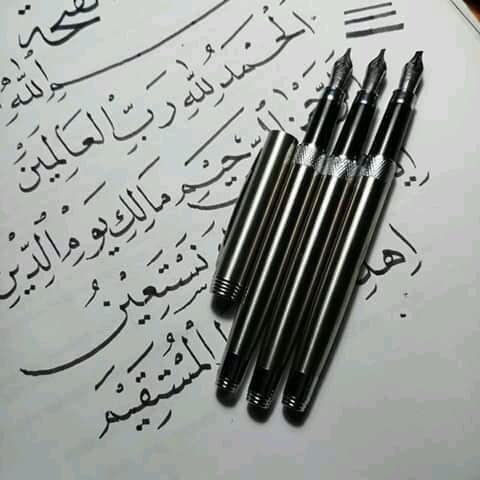 اللهِ
الْحَمْدُ لِلّٰهِ رَبِّ الْعَالَمِيْنَ
الرَّحِيْمِ مَالِكِ يَوْمِ الدِّيْنِ
نَسْتَعِيْنُ اِهْدِ
الْمُسْتَقِيْمَ